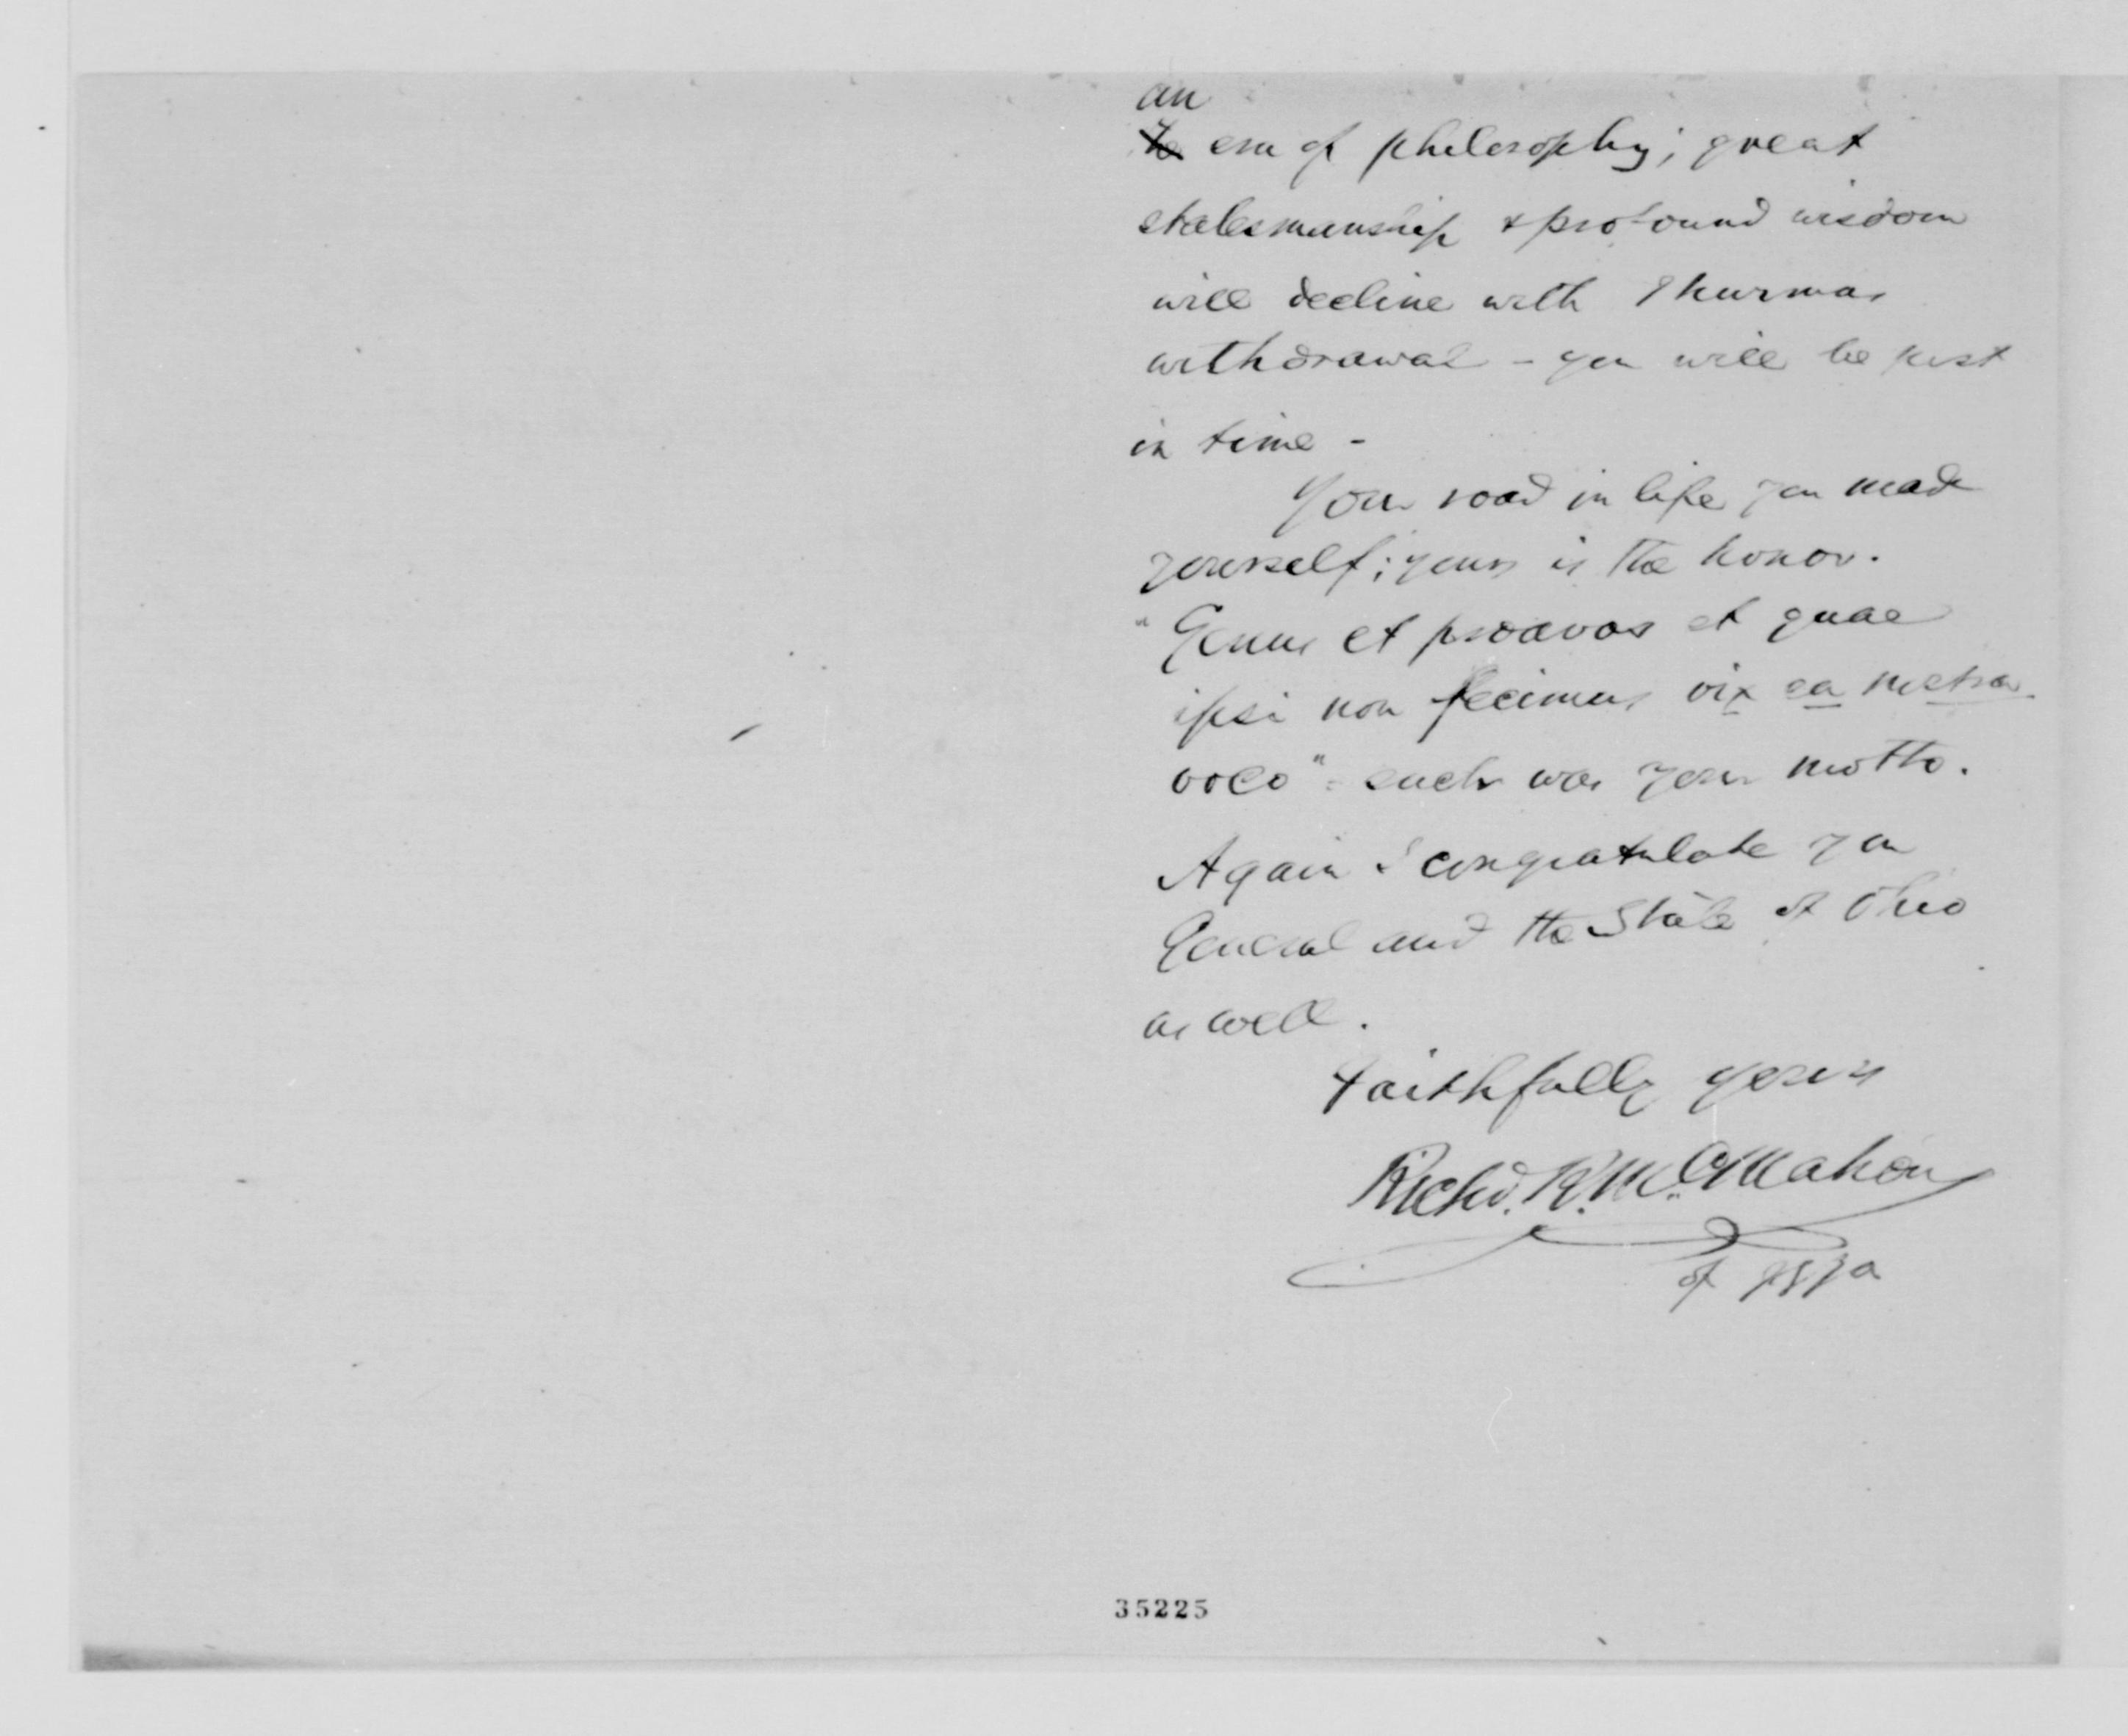 an
The era of philosophy; great
statesmanship & profound wisdom
will decline with Thurmans
withdrawal - you will be just
in time -
Your road in life you made
yourself; yours is the honor.
"Genus et proavos et quae
ipsi non fecimus vix ea nostra
voco" - such was your motto.
Again I congratulate you
General and the State of Ohio
as well.
Faithfully yours
Richd. R. McMahon
of
35225